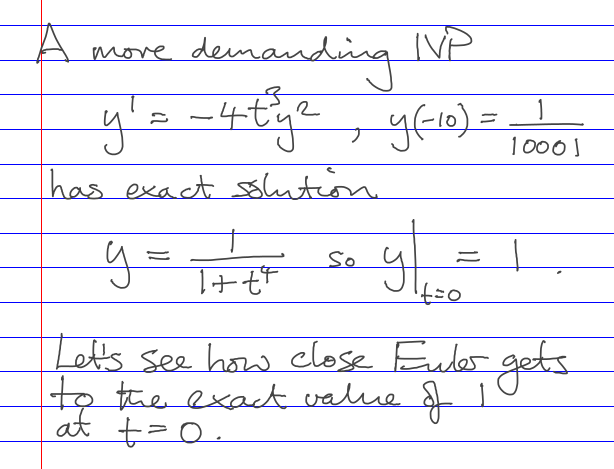 A more demanding IVP
y' = -4t³y² , y(-10) = 1/10001
has exact solution
y = 1/(1+t⁴) so y|ₜ₌₀ = 1.
Let's see how close Euler gets
to the exact value of 1
at t=0.